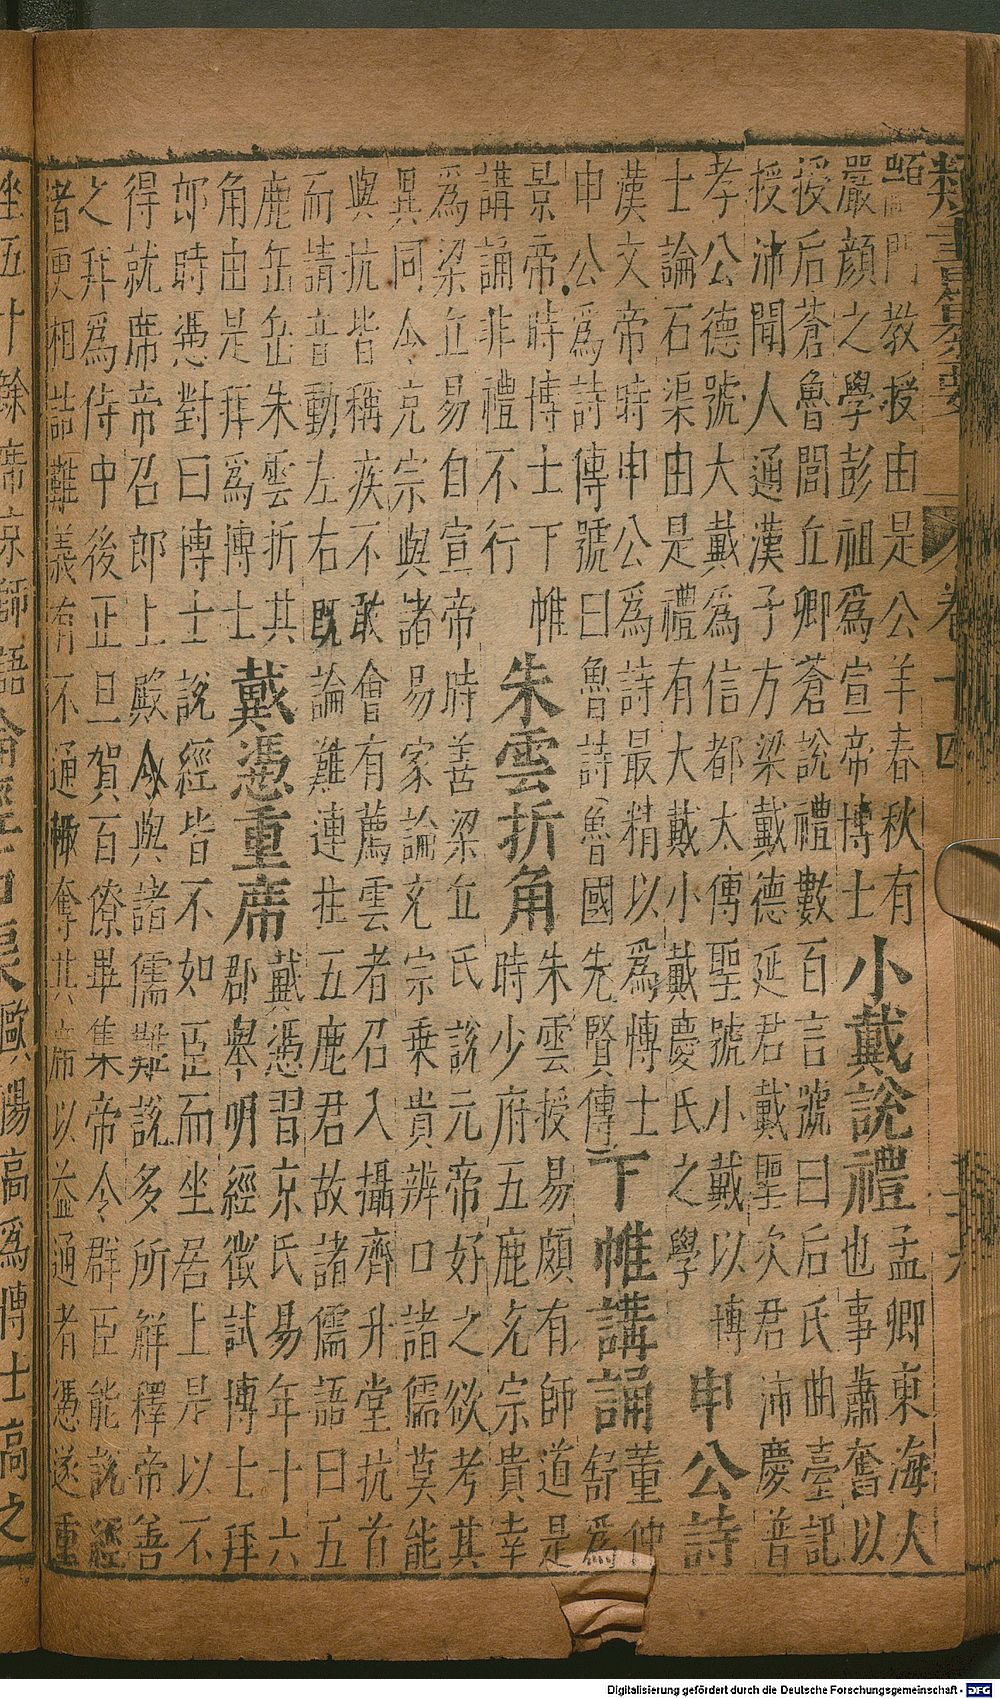 卷十四
顓門教授由是公羊春秋有
嚴顏之學彭祖爲宣帝博士
小戴說禮
孟卿東海人
也事蕭奮以
授后蒼魯閭丘卿蒼說禮數百言號曰后氏曲臺記
授沛聞人通漢子方梁戴德延君戴聖次君沛慶普
孝公德號大戴爲信都太傅聖號小戴以博
士論石渠由是禮有大戴小戴慶氏之學
申公詩
漢文帝時申公爲詩最精以爲博士
申公爲詩傳號曰魯詩(魯國先賢傳)
下帷講誦
董仲
舒爲
景帝時博士下帷
講誦非禮不行
朱雲折角
朱雲授易頗有師道是
時少府五鹿充宗貴幸
爲梁丘易自宣帝時善梁丘氏說元帝好之欲考其
異同令充宗與諸易家論充宗乗貴辨口諸儒莫能
與抗皆稱疾不敢會有薦雲者召入攝齊升堂抗首
而請音動左右既論難連拄五鹿君故諸儒語曰五
鹿岳岳朱雲折其
角由是拜爲博士
戴憑重席
戴憑習京氏易年十六
郡舉明經徵試博士拜
郎時憑對曰博士說經皆不如臣而坐居上是以不
得就席帝召郎上殿令與諸儒難說多所解釋帝善
之拜爲侍中後正旦賀百僚畢集帝令群臣能說經
者更相詰難義有不通輙奪其席以益通者憑遂重
坐五十餘席京師語歐陽高爲博士高之
Digitalisierung gefördert durch die Deutsche Forschungsgemeinschaft - DFG